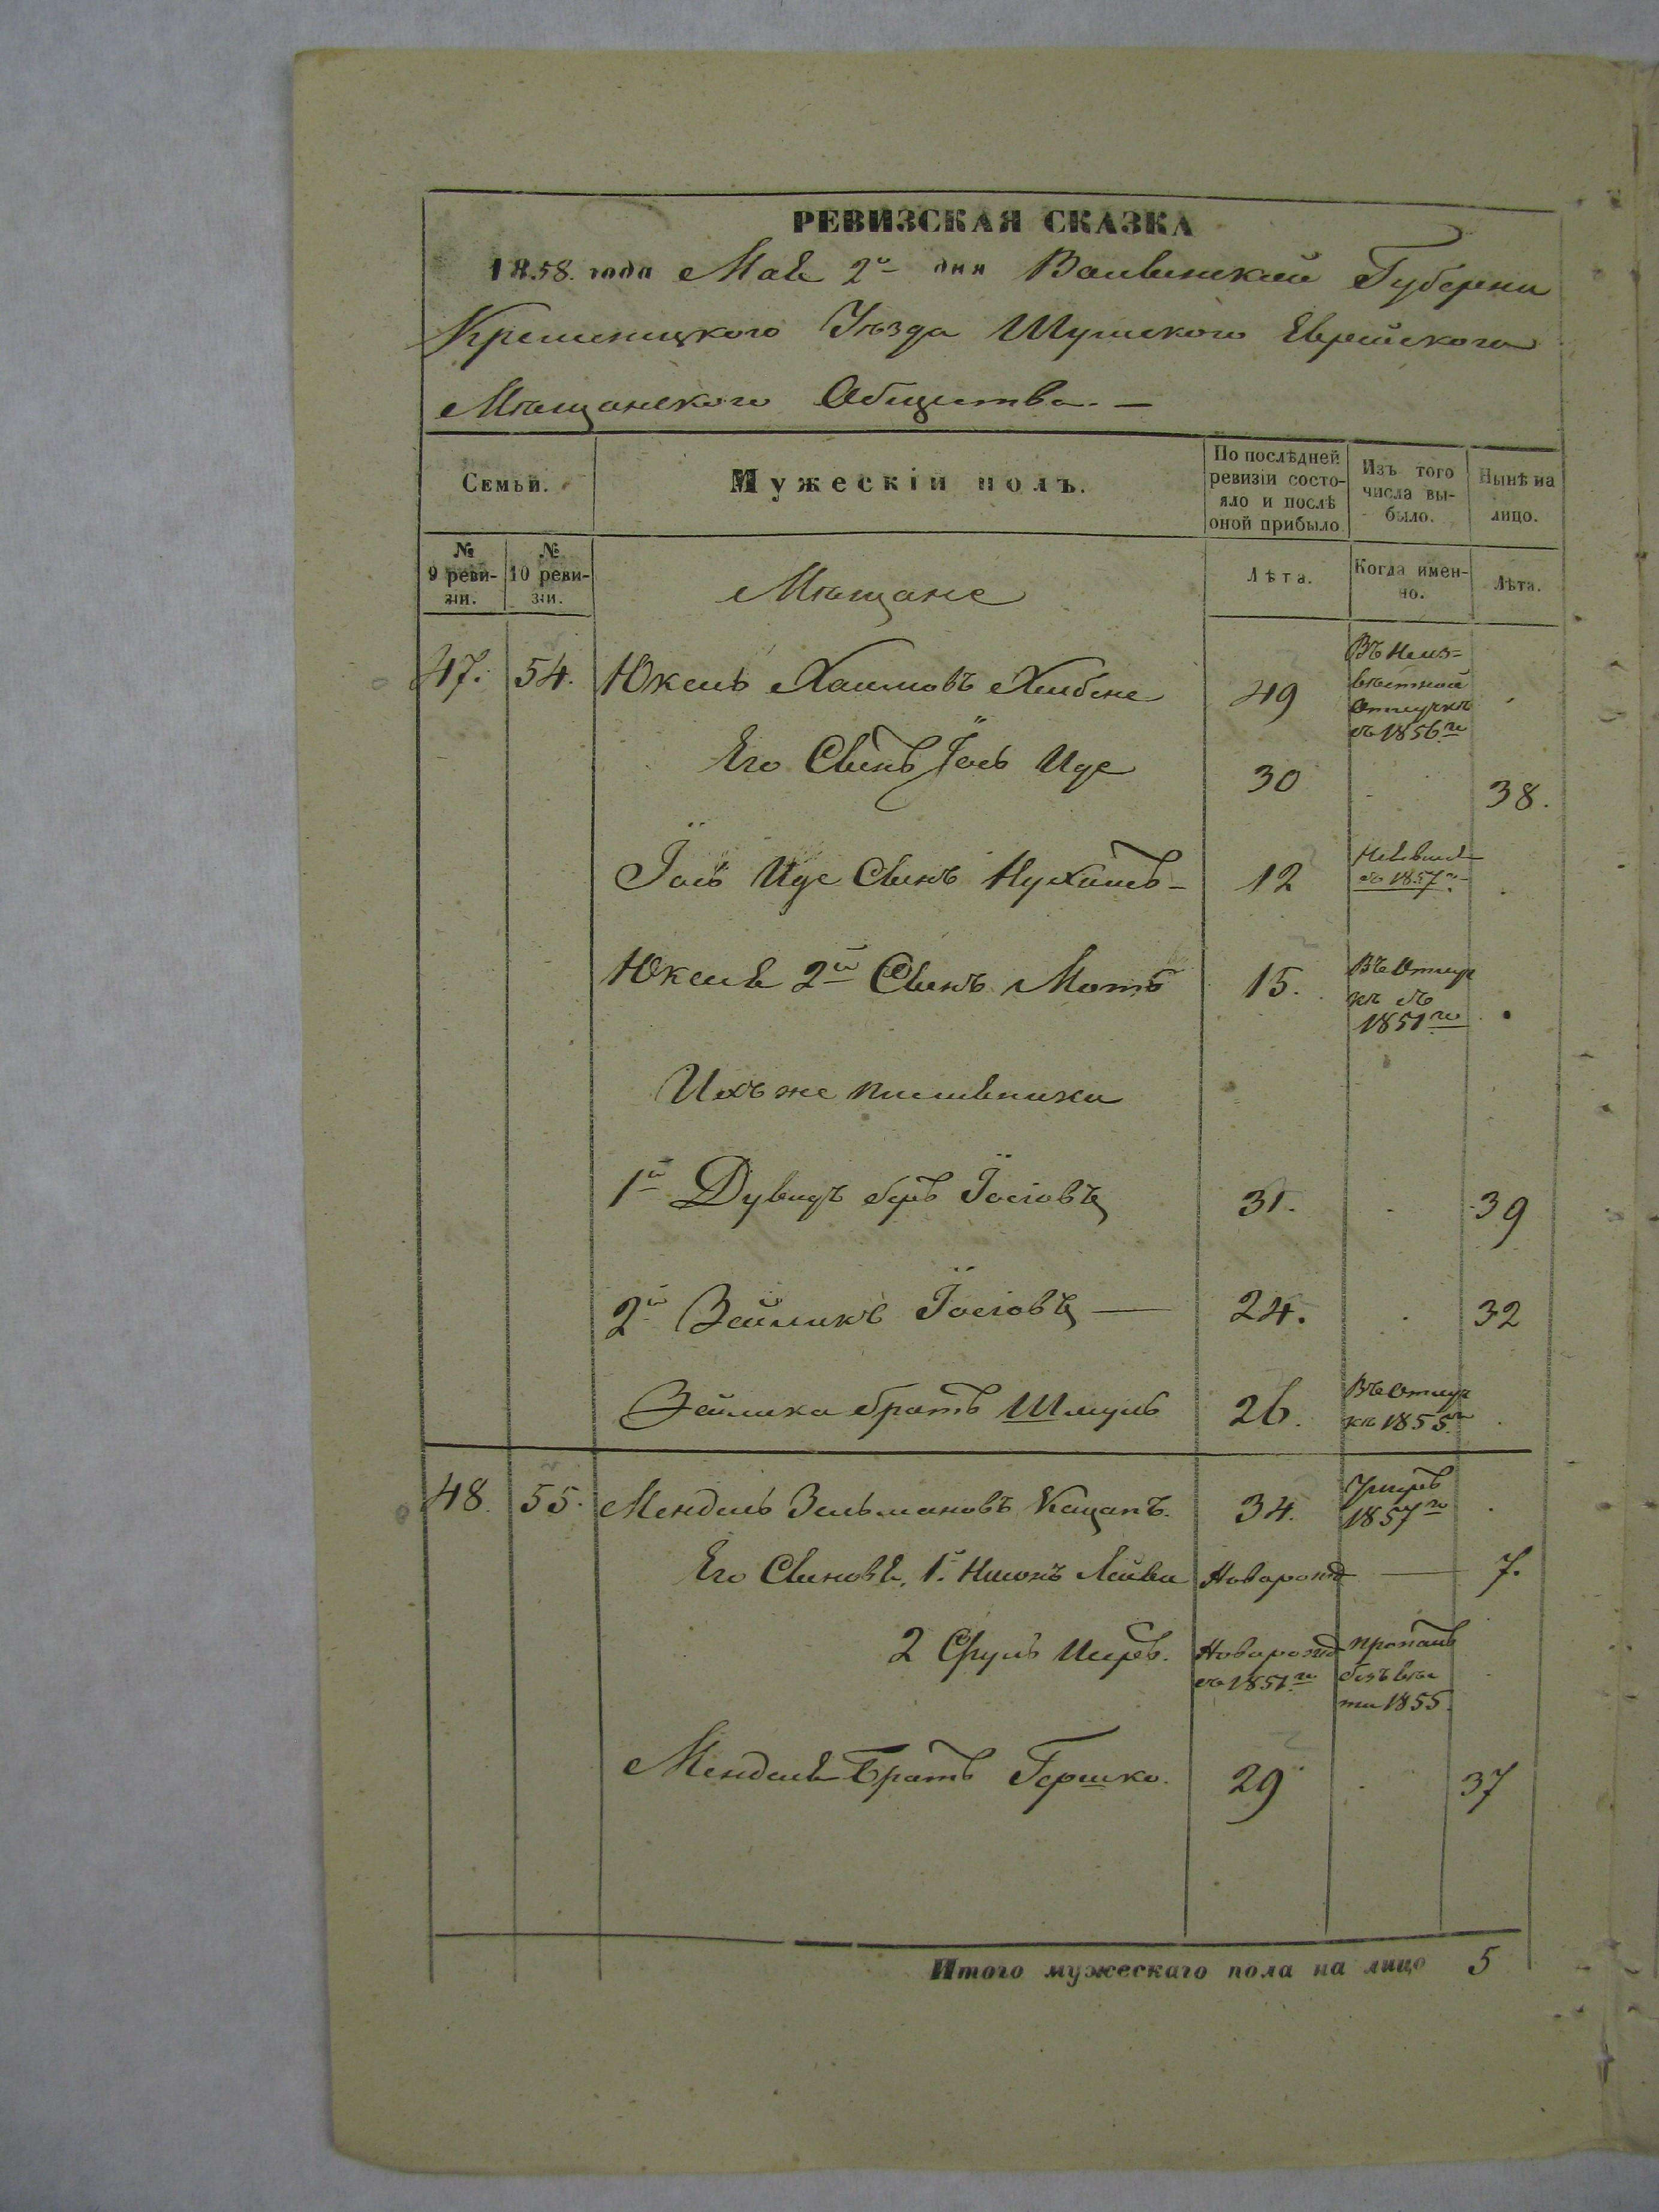 РЕВИЗСКАЯ СКАЗКА
1858. года Мая 2го дня Волынской Губерни
Кременицкого Уѣзда Шумского Еврейского
Мѣщанского Общества. —
Семьи.
Мужескій полъ.
По послѣдней ревизіи состояло и послѣ оной прибыло.
Изъ того числа выбыло.
Нынѣ на лицо.
№ 9 ревизіи.
№ 10 ревизіи.
Мѣщане
Лѣта.
Когда именно.
Лѣта.
47. 54. Юкель Хаимовъ 49 Въ Неиз=
вѣстной
Отлучкѣ
съ 1856го
Его Сынъ Іось Иде 30 38.
Іось Иде Сынъ Нухимъ - 12 съ 1857го
Юкеля 2й Сынъ Мотъ 15. Въ Отлуч
кѣ съ
1851го
Ихъ же племяники
1й Дувидъ беръ Іосіовъ 31. 39
2й Зейликъ Іосіовъ — 24. 32
Зейлика братъ Шмуль 26. Въ Отлуч
кѣ 1855го
48. 55. Мендель Зельмановъ Кацапъ. 34. Умеръ
1857го
Его Сыновья, 1й Нисонъ Лейба Новорожд — 7.
2 Сруль Новорожд пропалъ
съ 1851го безъ вѣс
ти 1855.
Менделя Братъ Гершко. 29 37
Итого мужескаго пола на лицо 5